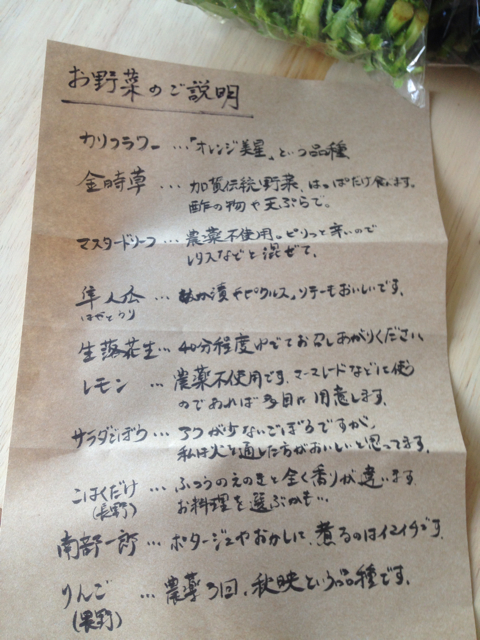 お野菜のご説明
カリフラワー …「オレンジ美星」という品種
金時草 … 加賀伝統野菜、はっぱだけ食べます。
酢の物や天ぷらで。
マスタードリーフ … 農薬不使用。ピリっと辛いので
レタスなどと混ぜて。
隼人瓜 … ぬか漬やピクルス、ソテーもおいしいです。
はやとうり
生落花生 … 40分程度ゆでてお召しあがりください
レモン … 農薬不使用です。マーマレードなどに使う
のであれば多目に用意します。
サラダごぼう … アクが少ないごぼうですが、
私は火を通した方がおいしいと思ってます。
こはくだけ … ふつうのえのきと全く香りが違います。
(長野) お料理を選ぶかも…
南部一郎 … ポタージュやおかしに。煮るのはイマイチです。
りんご … 農薬3回、秋映という品種です。
(長野)